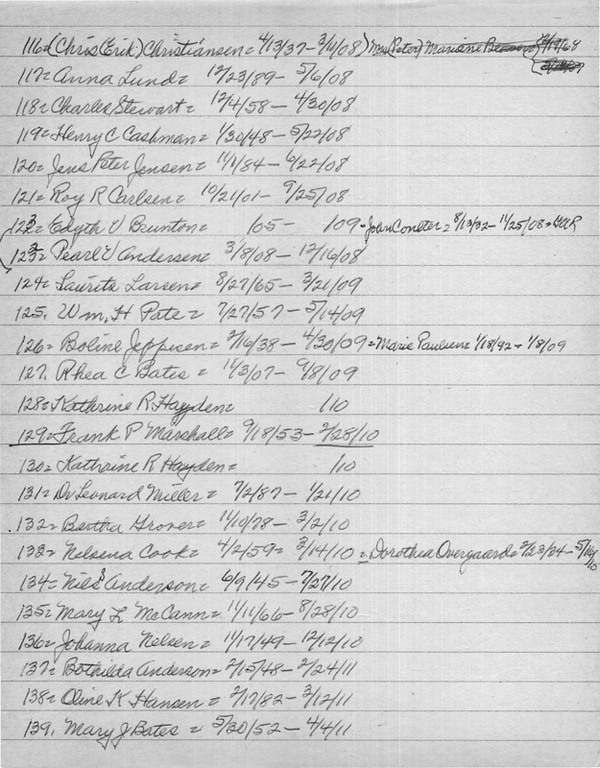 116=(Chris(Erik) Christiansen= 4/13/37- 3/4/08) Mrs(Peter) Mariane
117= Anna Lund= 12/23/89- 5/6/08
118= Charles Stewart= 12/4/58- 4/30/08
119= Henry C Cashman= 1/30/48- 5/22/08
120= Jens Peter Jensen= 11/1/84- 6/22/08
121= Roy R Carlsen= 10/21/01- 9/25/08
122= Edyth V Brunton= /05- /09- John = 8/13/32- 11/25/08= GAR
123= Pearl V Andersen= 3/8/08- 12/16/08
124= Laurits Larsen= 8/27/65- 3/21/09
125. Wm. H Pate= 7/27/57- 5/14/09
126= Boline Jeppesen= 2/16/38- 4/30/09= Marie Paulsen= 1/18/92- 1/8/09
127. Rhea C Bates= 11/3/07- 9/8/09
128= Kathrine R Hayden= /10
129= Frank P Marshall= 9/18/53- 2/28/10
130= Kathrine R Hayden= /10
131= Dr Leonard Miller= 7/2/87- 1/21/10
.132= Bertha Grover= 11/10/78- 3/2/10
133= Nelsena Cook= 4/2/59= 3/14/10= Dorothea Overgaard= 2/23/84- 5/10
134= Nels Anderson= 6/9/45- 7/27/10
135= Mary L McCann= 11/11/66- 8/28/10
136= Johanna Nelsen= 11/17/49- 12/12/10
137= Bothilda Anderson= 2/15/48- 2/24/11
138= Oline K Hansen= 2/17/82- 3/12/11
139. Mary J Bates= 5/30/52- 4/4/11